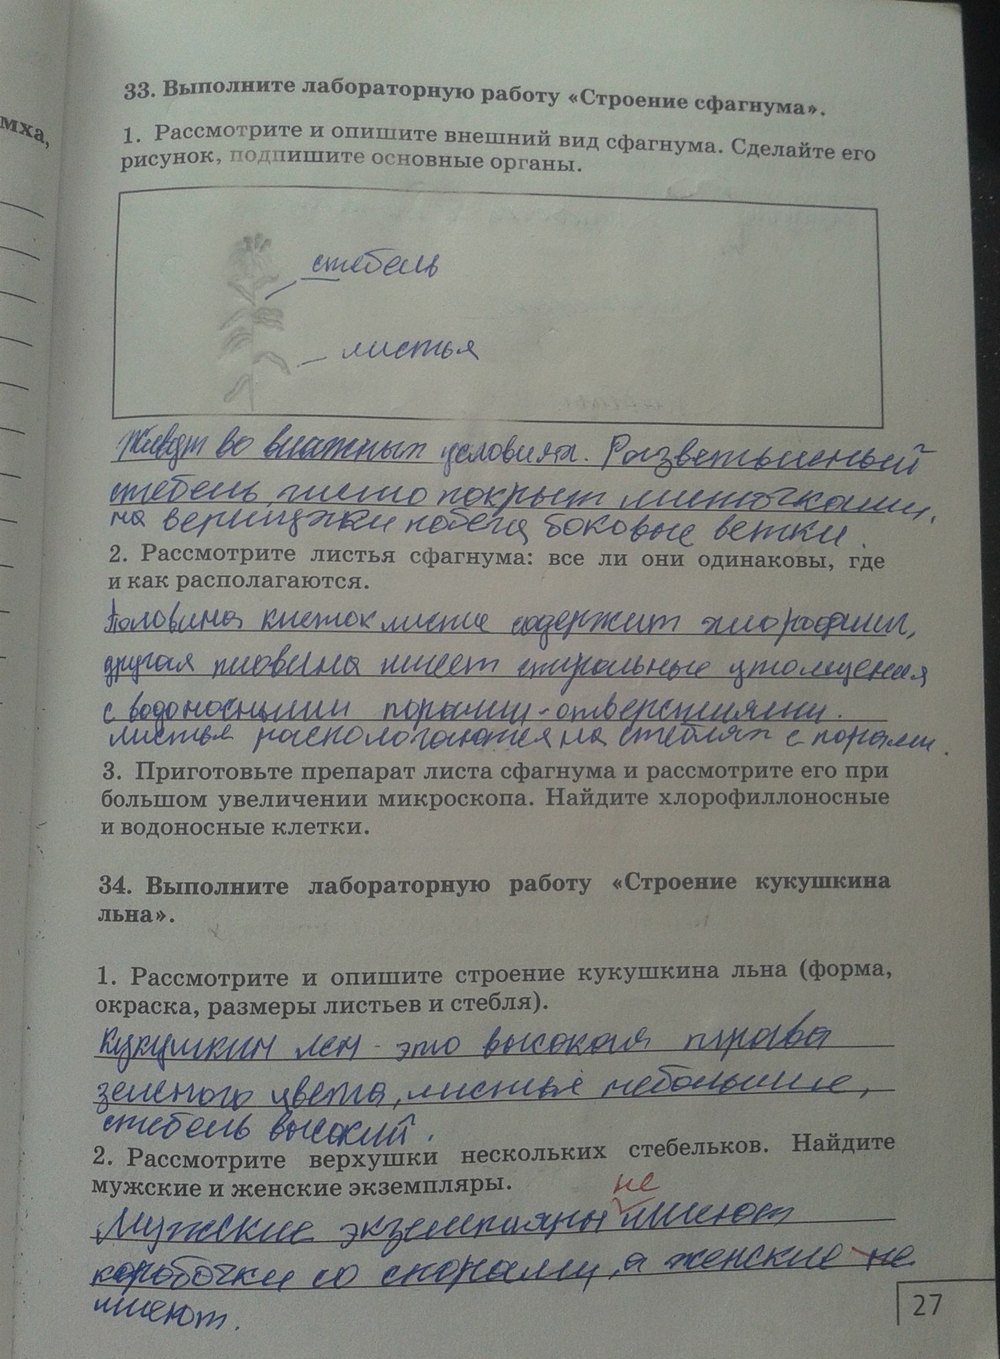 мха,
33. Выполните лабораторную работу «Строение сфагнума».
1. Рассмотрите и опишите внешний вид сфагнума. Сделайте его
рисунок, подпишите основные органы.
стебель
листья
Живут во влажных условиях. Разветвленный
стебель густо покрыт листочками,
на верхушки побега боковые ветки.
2. Рассмотрите листья сфагнума: все ли они одинаковы, где
и как располагаются.
Половина клеток листа содержит хлорофилл,
другая половина имеет спиральные утолщения
с водоносными порами-отверстиями.
листья распологаются на стеблях с порами.
3. Приготовьте препарат листа сфагнума и рассмотрите его при
большом увеличении микроскопа. Найдите хлорофиллоносные
и водоносные клетки.
34. Выполните лабораторную работу «Строение кукушкина
льна».
1. Рассмотрите и опишите строение кукушкина льна (форма,
окраска, размеры листьев и стебля).
Кукушкин лен - это высокая трава
зеленого цвета, листья небольшие,
стебель высокий.
2. Рассмотрите верхушки нескольких стебельков. Найдите
мужские и женские экземпляры.
не
Мужские экземпляры имеют
коробочки со спорами, а женские не
имеют.
27